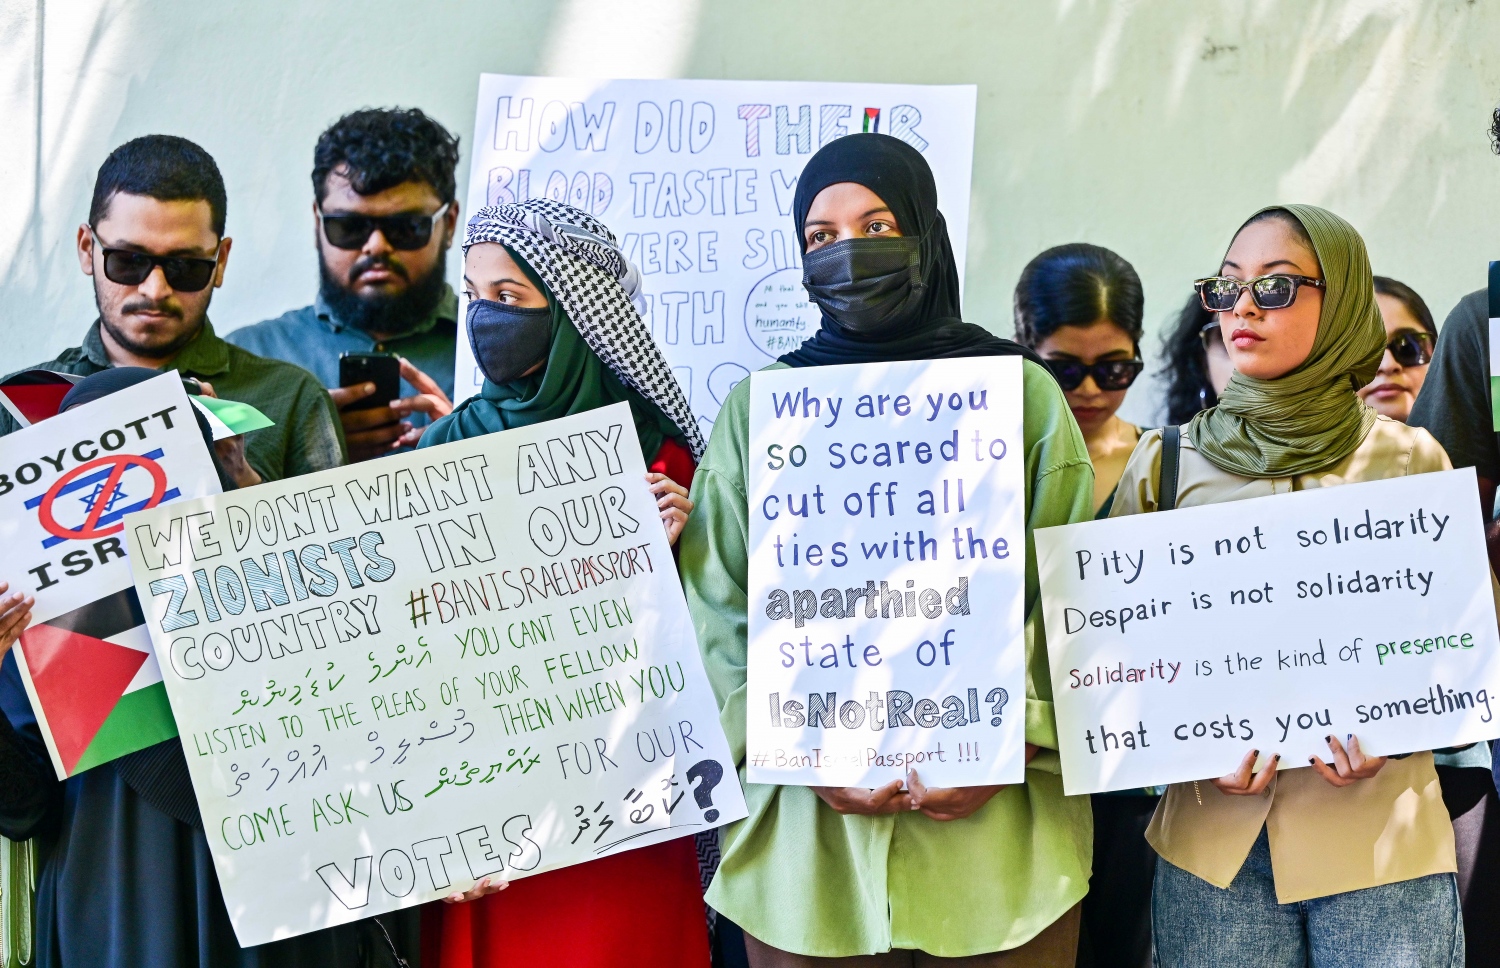 HOW DID THEIR
BLOOD TASTE
humanity
BOYCOTT
WE DONT WANT ANY
ZIONISTS IN OUR
COUNTRY #BANISRAELPASSPORT
YOU CANT EVEN
LISTEN TO THE PLEAS OF YOUR FELLOW
THEN WHEN YOU
COME ASK US ރައްޔިތުން FOR OUR
VOTES ?
Why are you
so scared to
cut off all
ties with the
aparthied
state of
IsNotReal?
#BanIsraelPassport !!!
Pity is not solidarity
Despair is not solidarity
Solidarity is the kind of presence
that costs you something.